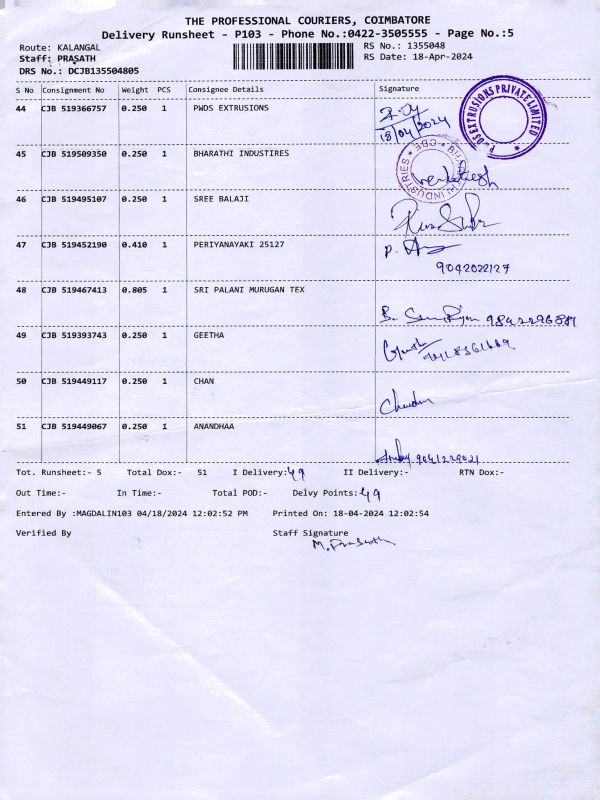 THE PROFESSIONAL COURIERS, COIMBATORE
Delivery Runsheet - P103 - Phone No.:0422-3505555 - Page No.:5
Route: KALANGAL
RS No.: 1355048
Staff: PRASATH
RS Date: 18-Apr-2024
DRS No.: DCJB135504805
S No Consignment No Weight PCS Consignee Details Signature
44 CJB 519366757 0.250 1 PWDS EXTRUSIONS
18/04/2024
PWDS EXTRUSIONS PRIVATE LIMITED
45 CJB 519509350 0.250 1 BHARATHI INDUSTIRES
BHARATHI INDUSTRIES * CBE *
Venkatesh
46 CJB 519495107 0.250 1 SREE BALAJI
47 CJB 519452190 0.410 1 PERIYANAYAKI 25127
P.
9042022127
48 CJB 519467413 0.805 1 SRI PALANI MURUGAN TEX
B.
49 CJB 519393743 0.250 1 GEETHA
50 CJB 519449117 0.250 1 CHAN
51 CJB 519449067 0.250 1 ANANDHAA
Tot. Runsheet:- 5 Total Dox:- 51 I Delivery:49 II Delivery:- RTN Dox:-
Out Time:- In Time:- Total POD:- Delvy Points:49
Entered By :MAGDALIN103 04/18/2024 12:02:52 PM Printed On: 18-04-2024 12:02:54
Verified By Staff Signature
M. Prasath